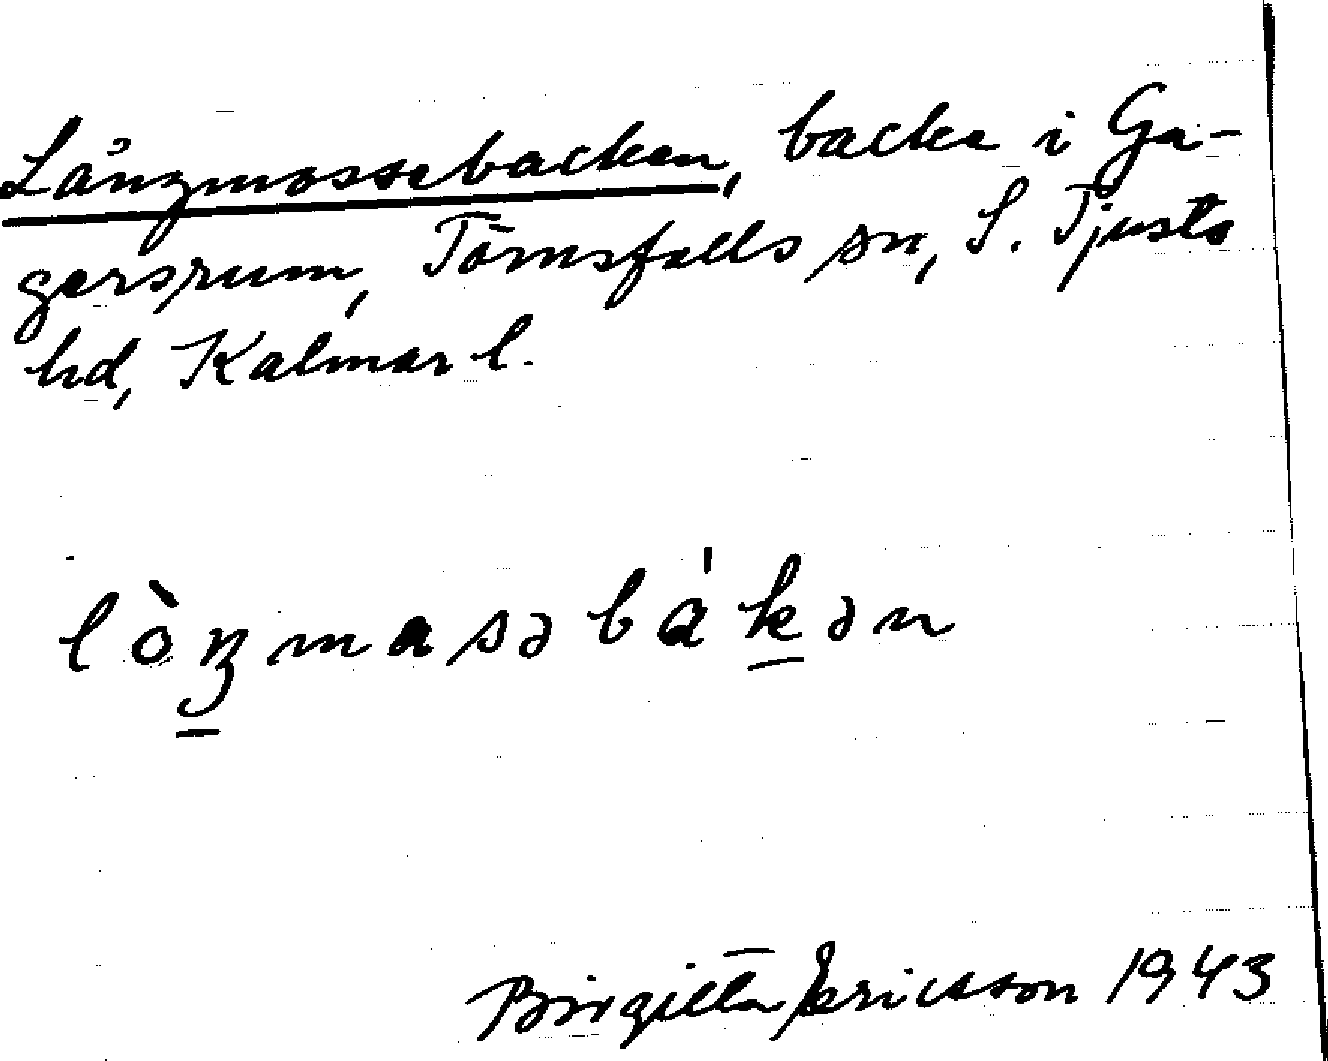 Långmossebacken, backe i Ga-
gersrum, Törnsfalls sn, S. Tjusts
hd, Kalmar l.
lòŋmasəbákən
Birgitta Ericsson 1943